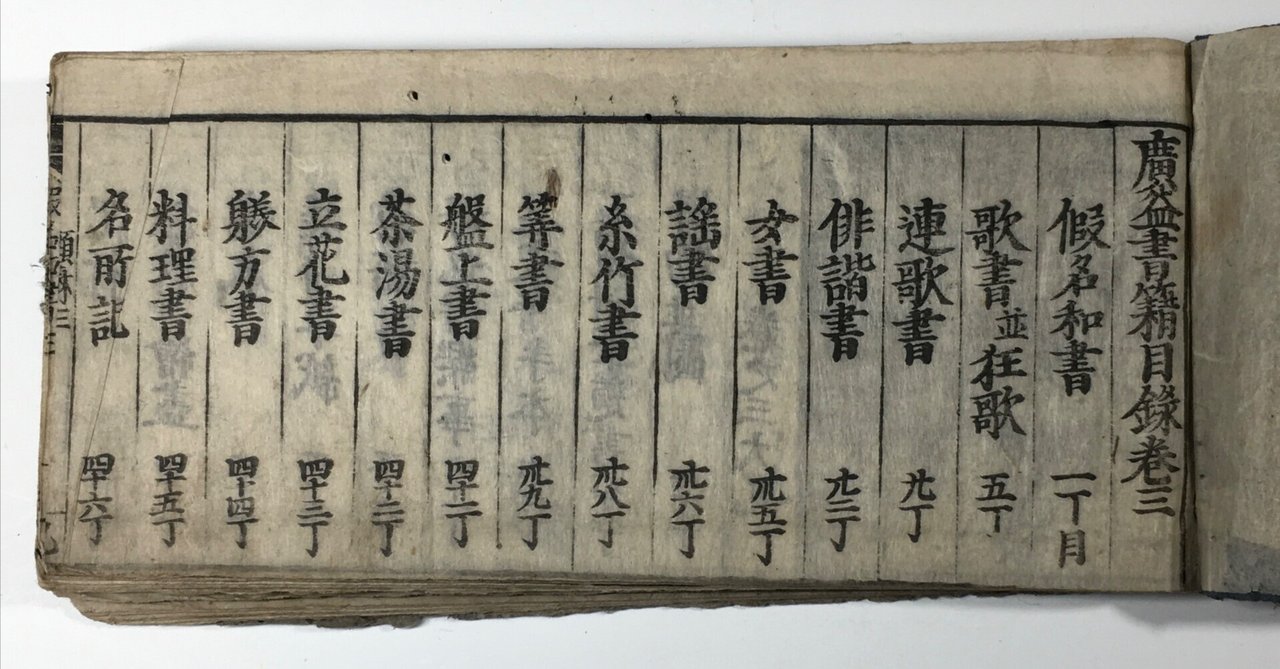 廣益書籍目錄卷三
假名和書 一丁目
歌書並狂歌 五丁
連歌書 丁
俳諧書 廿二丁
女書 卅五丁
謡書 卅六丁
糸竹書 卅八丁
筭書 卅九丁
盤上書 四十一丁
茶湯書 四十二丁
立花書 四十三丁
躾方書 四十四丁
料理書 四十五丁
名所記 四十六丁